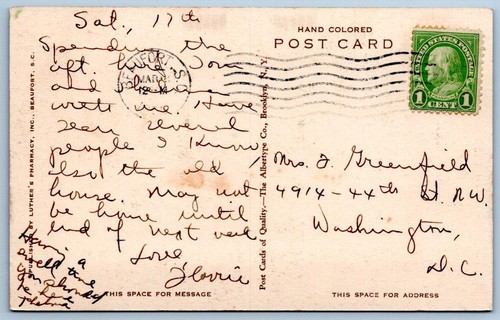 Sat, 17th
Spending the
aft. here. Tom
and
with me. Have
seen several
people I know
also the old
house. May not
be home until
end of next week
Love,
Florrie
Having a
swell time
be here
PUBLISHED BY LUTHER'S PHARMACY, INC., BEAUFORT, S.C.
THIS SPACE FOR MESSAGE
BEAUFORT S.C.
MAR
Post Cards of Quality.—The Albertype Co., Brooklyn, N. Y.
HAND COLORED
POST CARD
UNITED STATES POSTAGE
1 CENT 1
Mrs. F. Greenfield
4914-44th St. N.W.
Washington,
D.C.
THIS SPACE FOR ADDRESS